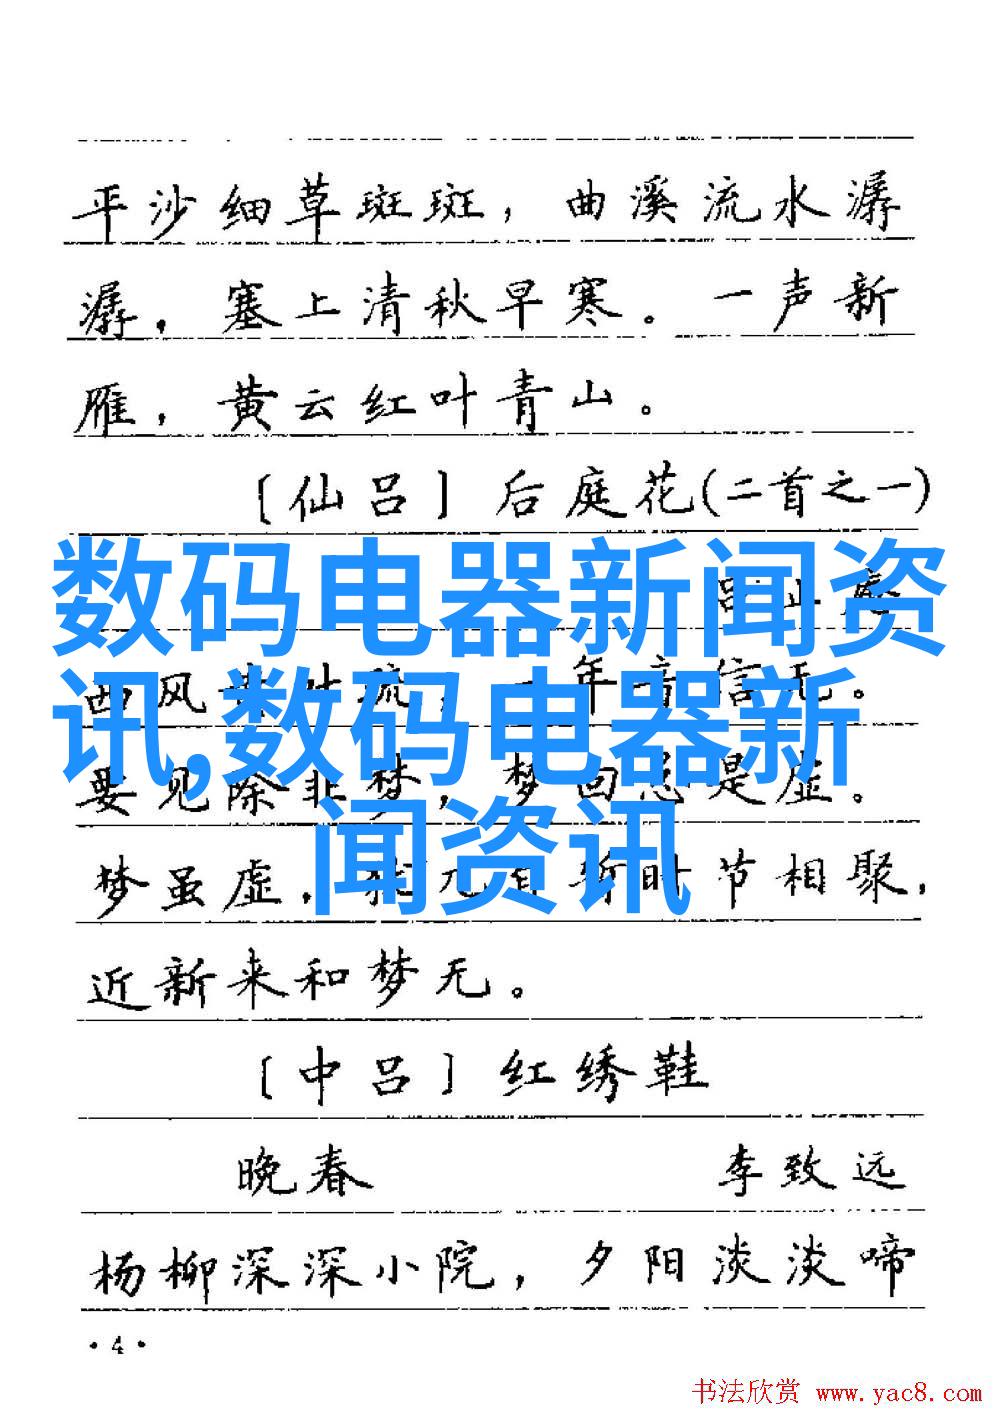 平沙细草斑斑，曲溪流水潺
潺，塞上清秋早寒。一声新
雁，黄云红叶青山。
〔仙吕〕后庭花(二首之一)
数码电器新闻资
讯,数码电器新
闻资讯
风 年音信无。
要见除非梦，梦回总是虚。
梦虽虚， 时节相聚，
近新来和梦无。
〔中吕〕红绣鞋
晚春 李致远
杨柳深深小院，夕阳淡淡啼
·4·
书法欣赏 www.yac8.com